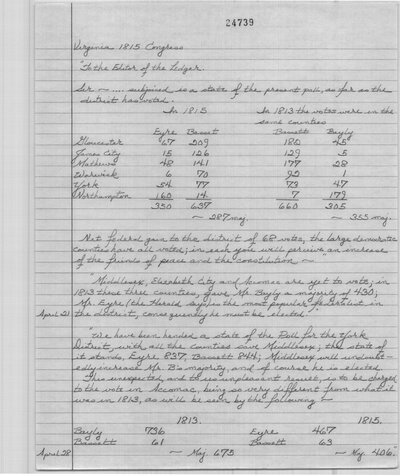 24739
Virginia 1815 Congress
"To the Editor of the Ledger.
Sir ~ .... subjoined is a state of the present poll, as far as the
district has voted.
In 1815 In 1813 the votes were in the
same counties
Eyre Basset Bassett Bayly
Gloucester 67 209 182 45
James City 15 126 129 5
Mathews 48 141 177 28
Warwick 6 70 92 1
York 54 77 73 47
Northampton 160 14 7 179
350 637 660 305
~ 287 maj. ~ 355 maj.
Net federal gain to the district of 68 votes, the large democratic
counties have all voted; in each you will perceive an increase
of the friends of peace and the constitution ~
"Middlesex, Elizabeth City and Accomac are yet to vote; in
1813 these three counties gave Mr. Bayly a majority of 430;
Mr. Eyre (the Herald says) is the most popular federalist in
April 21 the district, consequently he must be elected."
"We have been handed a state of the Poll for the York
District, with all the counties save Middlesex; the state of
it stands, Eyre 837, Bassett 844; Middlesex will undoubt-
edly increase Mr. B's majority, and of course he is elected.
This unexpected, and to us unpleasant result, is to be charged
to the vote in Accomac, being so very different from what it
was in 1813, as will be seen by the following ~
1813. 1815.
Bayly 736 Eyre 467
Bassett 61 Bassett 63
April 28 ~ Maj. 675 ~ Maj. 406."